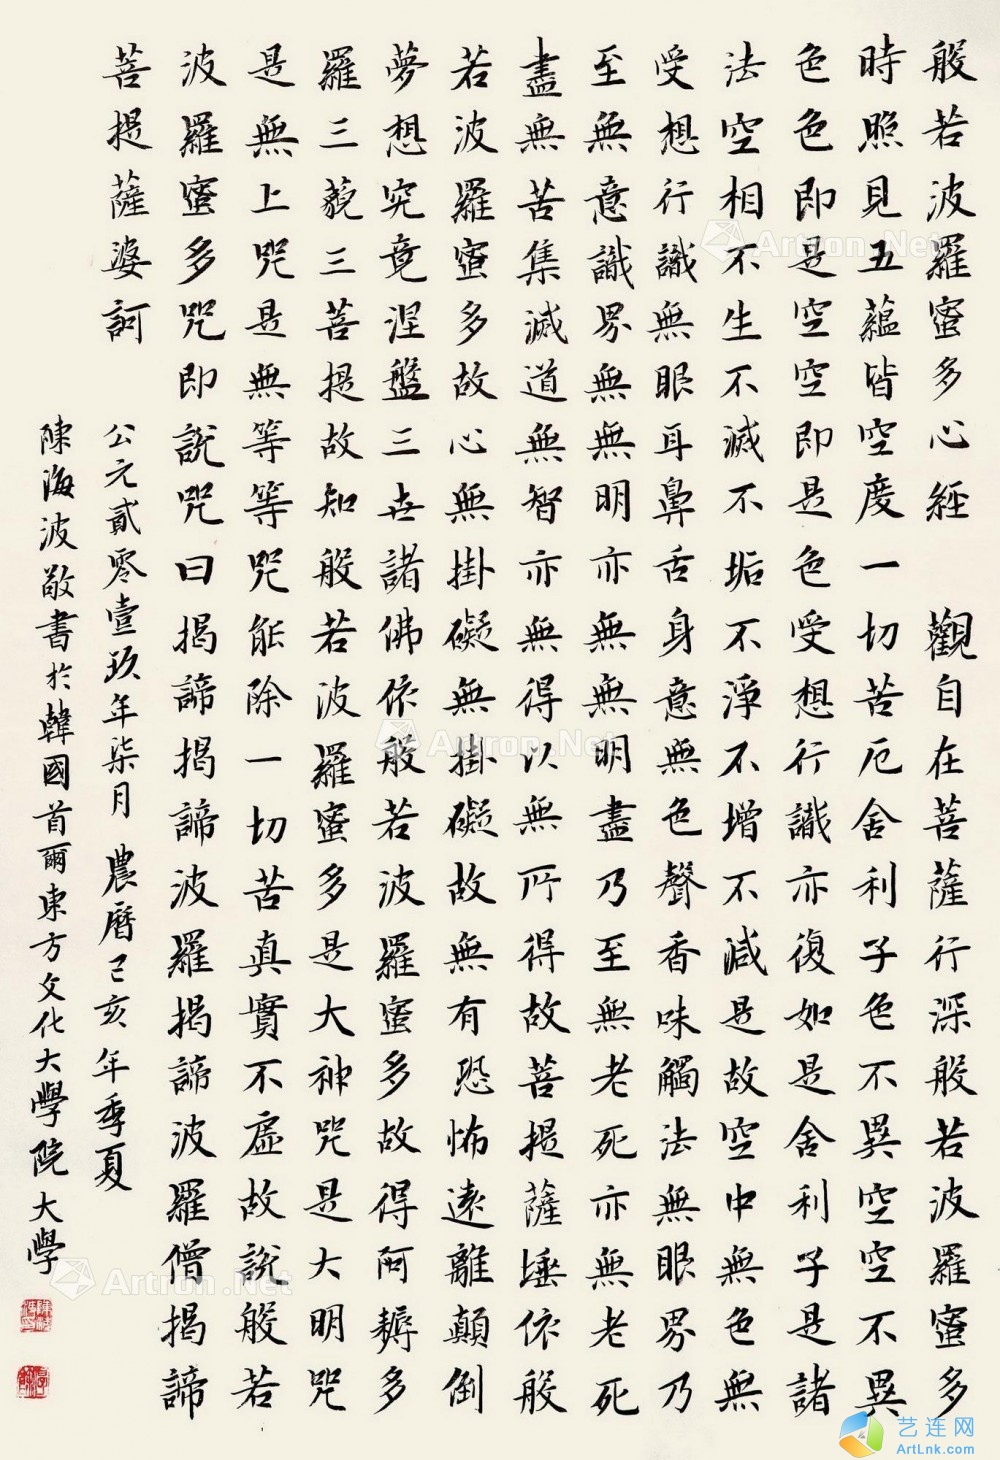 般若波羅蜜多心經 觀自在菩薩行深般若波羅蜜多
時照見五蘊皆空度一切苦厄舍利子色不異空空不異
色色即是空空即是色受想行識亦復如是舍利子是諸
法空相不生不滅不垢不淨不增不減是故空中無色無
受想行識無眼耳鼻舌身意無色聲香味觸法無眼界乃
至無意識界無無明亦無無明盡乃至無老死亦無老死
盡無苦集滅道無智亦無得以無所得故菩提薩埵依般
若波羅蜜多故心無掛礙無掛礙故無有恐怖遠離顛倒
夢想究竟涅盤三世諸佛依般若波羅蜜多故得阿耨多
羅三藐三菩提故知般若波羅蜜多是大神咒是大明咒
是無上咒是無等等咒能除一切苦真實不虛故說般若
波羅蜜多咒即說咒曰揭諦揭諦波羅揭諦波羅僧揭諦
菩提薩婆訶
公元貳零壹玖年柒月 農曆己亥年季夏
陳海波敬書於韓國首爾東方文化大學院大學
Artron.Net
Artron.Net
Artron.Net
艺连网
ArtLnk.com